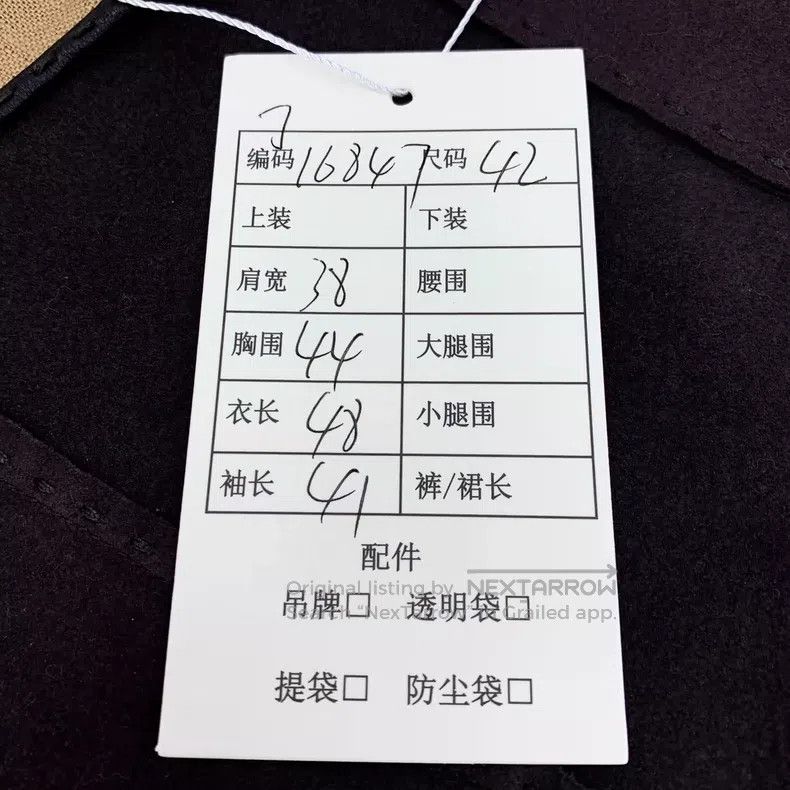 编码 16847 尺码 42
上装 下装
肩宽 38 腰围
胸围 44 大腿围
衣长 48 小腿围
袖长 41 裤/裙长
配件
Original listing by NEXTARROW
吊牌□ 透明袋□
Search "NexTArrow" Grailed app.
提袋□ 防尘袋□